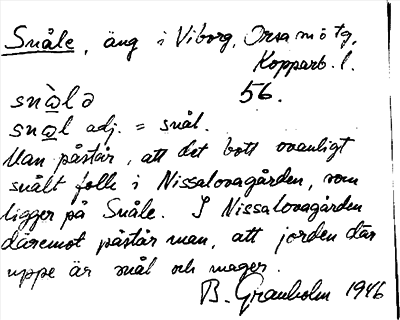 Snåle, äng i Viborg, Orsa mö tg,
Kopparb. l.
snàlə 56.
snal adj. = snål.
Man påstår, att det bott ovanligt
snålt folk i Nissalovagården, som
ligger på Snåle. I Nissalovagården
däremot påstår man, att jorden där
uppe är snål och mager.
B. Granholm 1946